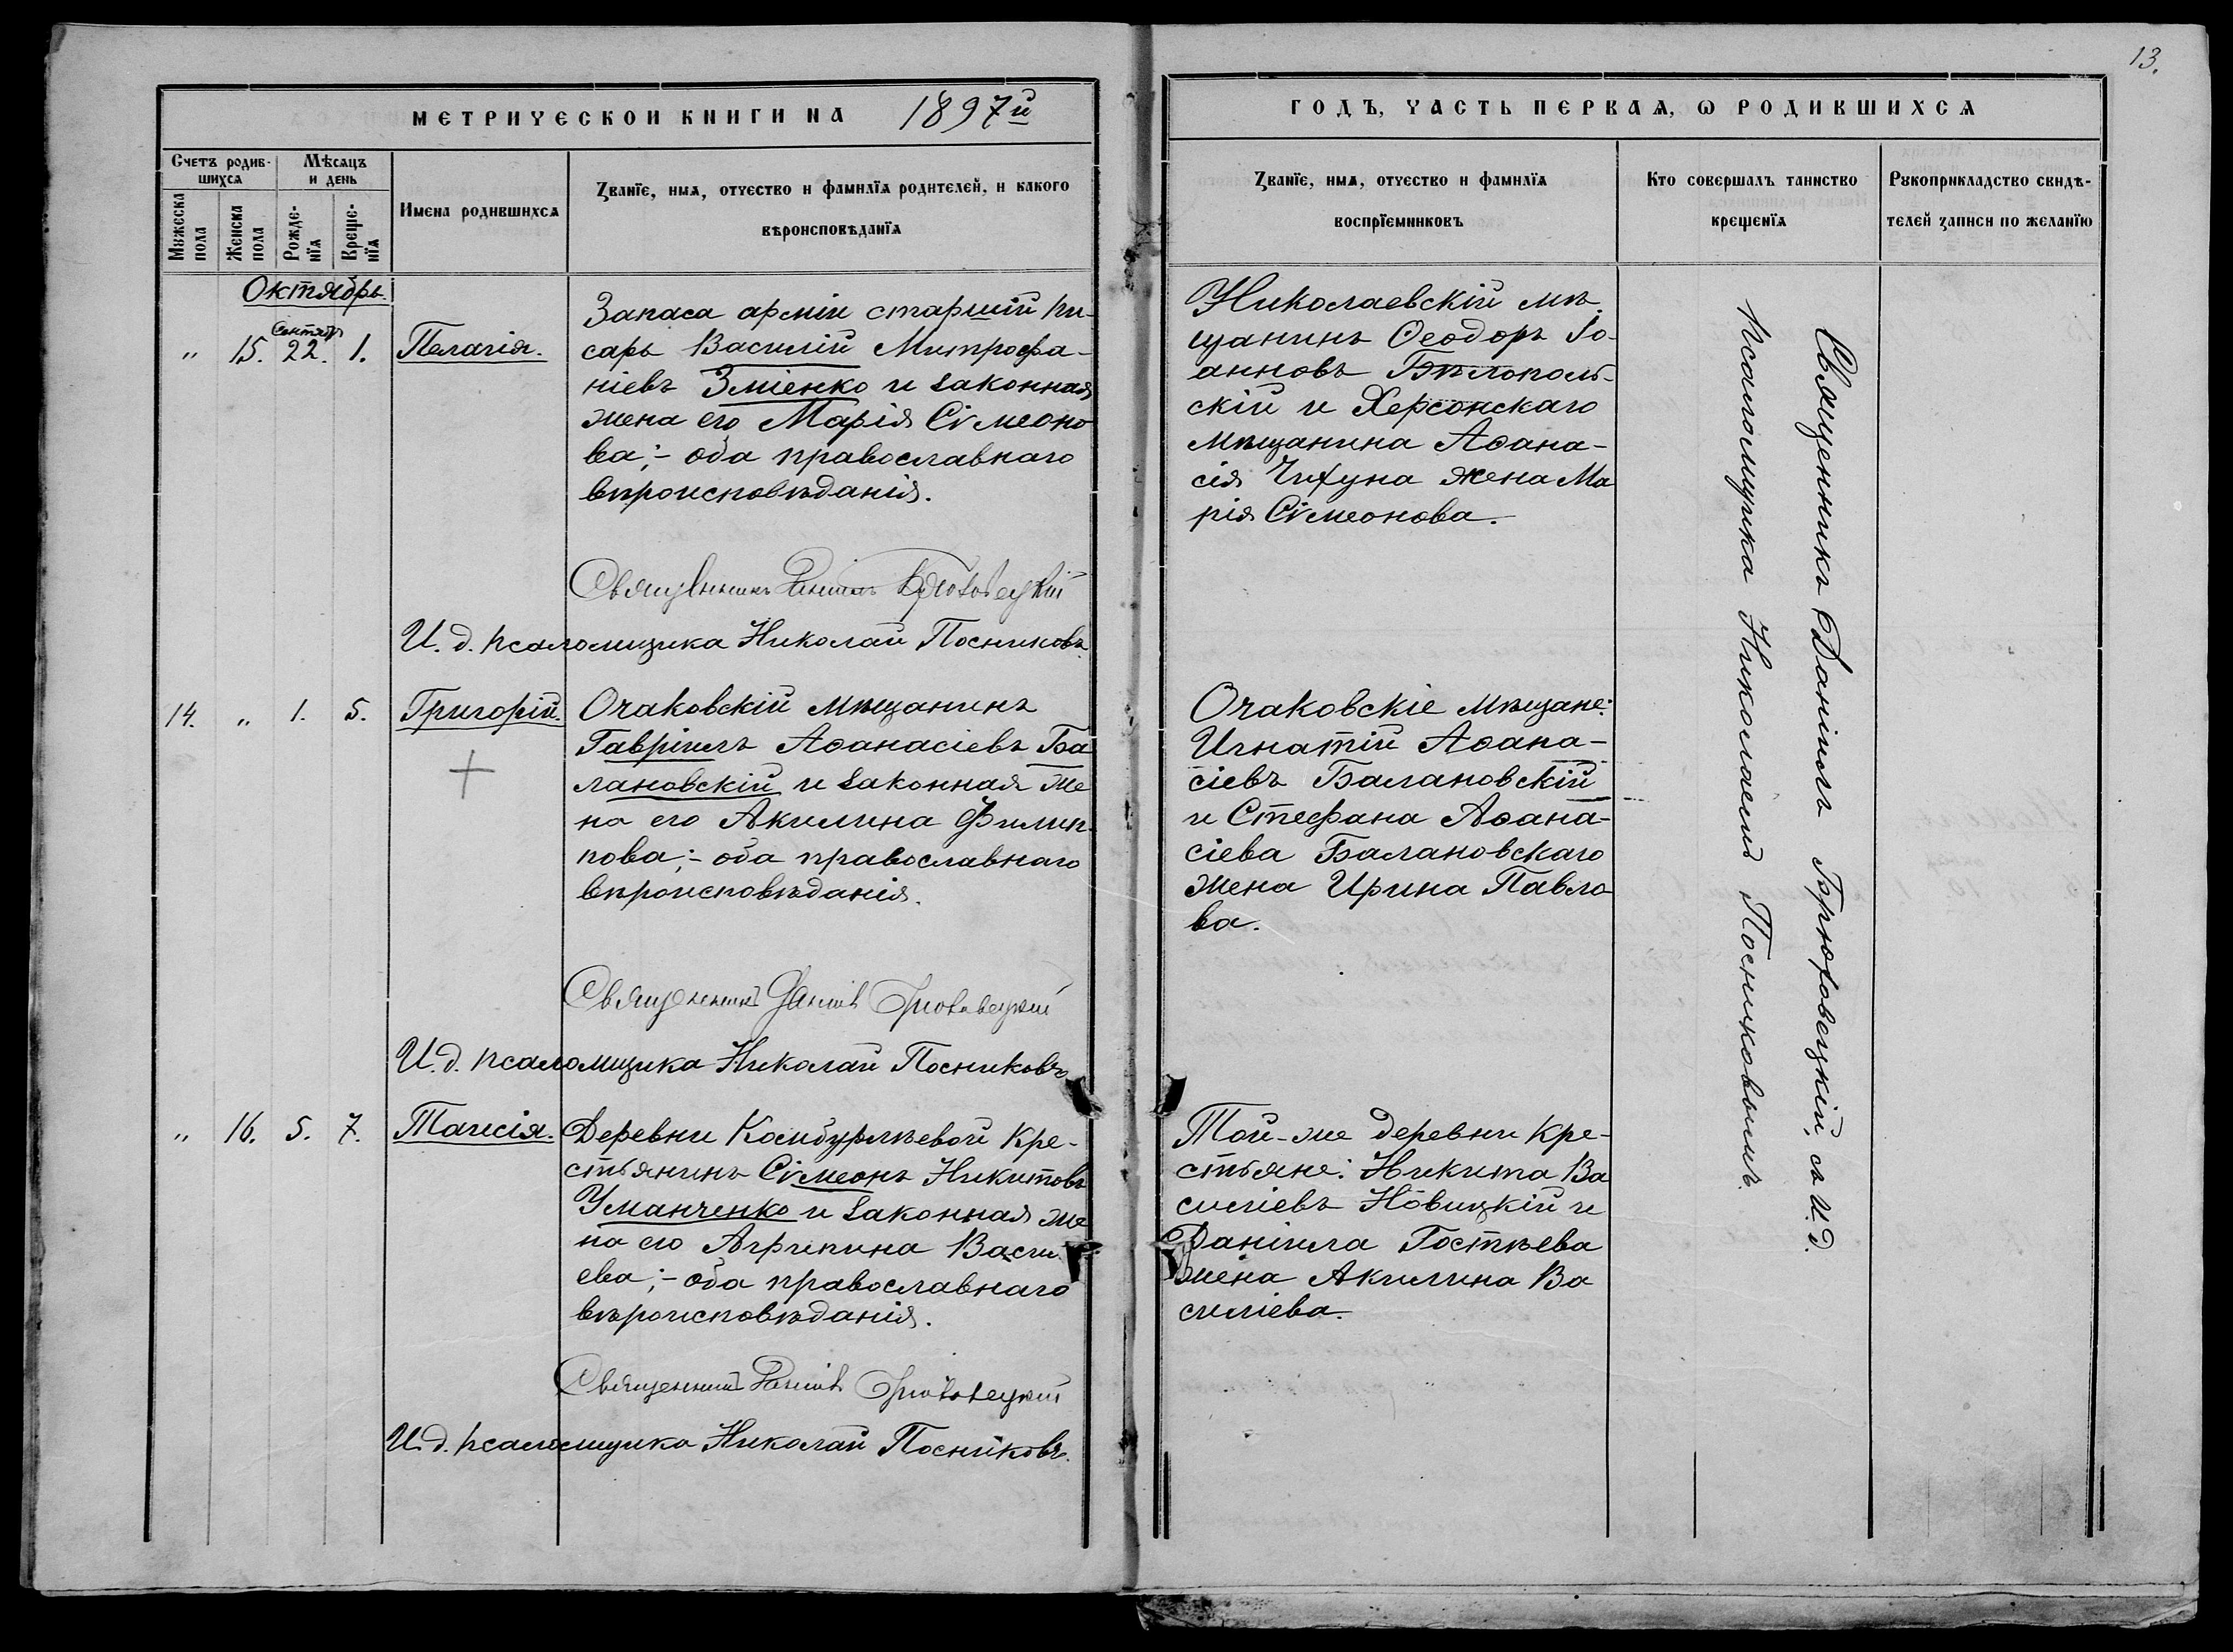 13.
МЕТРИЧЕСКОЙ КНИГИ НА 1897й
ГОДЪ, ЧАСТЬ ПЕРВАЯ, Ѡ РОДИВШИХСЯ
Счетъ родив-
шихся
Мѣсяцъ
и день
Мужеска
пола
Женска
пола
Рожде-
нїя
Креще-
нїя
Имена родившихся
Званїе, имя, отчество и фамилїя родителей, и какого
вѣроисповѣданїя
Званїе, имя, отчество и фамилїя
воспрїемниковъ
Кто совершалъ таинство
крещенїя
Рукоприкладство свидѣ-
телей записи по желанїю
Октябрь.
Сентяб
" 15. 22. 1. Пелагія.
Запаса арміи старшій пи-
сарь Василій Митрофа-
ніевъ Зміенко и законная
жена его Марія Сѵмеоно
ва;- оба православнаго
вѣроисповѣданія.
Священникъ Даніилъ Брюховецкій
И. д. псаломщика Николай Посниковъ.
Николаевскій мѣ-
щанинъ Ѳеодоръ Іо-
анновъ Бѣлополь-
скій и Херсонскаго
мѣщанина Аѳана-
сія Чихуна жена Ма
рія Сѵмеонова.
14. " 1. 5. Григорій.
Очаковскій мѣщанинъ
Гавріилъ Аѳанасіевъ Ба
лановскій и законная же
на его Акилина Филип-
пова;- оба православнаго
вѣроисповѣданія.
Священникъ Даніилъ Брюховецкій
И. д. псаломщика Николай Посниковъ
Очаковскіе мѣщане:
Игнатій Аѳана-
сіевъ Балановскій
и Стефана Аѳана-
сіева Балановскаго
жена Ирина Павло
ва.
" 16. 5. 7. Таисія.
Деревни Камбурлѣевой кре-
стьянинъ Сѵмеонъ Никитовъ
Уманченко и законная же
на его Агрипина Васи
ева;- оба православнаго
вѣроисповѣданія.
Священникъ Даніилъ Брюховецкій
И. д. псаломщика Николай Посниковъ.
Той-же деревни кре-
стьяне: Никита Ва
силіевъ Новицкій и
Даніила Гостѣева
жена Акилина Ва
силіева.
Священникъ Даніилъ Брюховецкій, съ И. Д.
Псаломщика Николаемъ Посниковымъ.